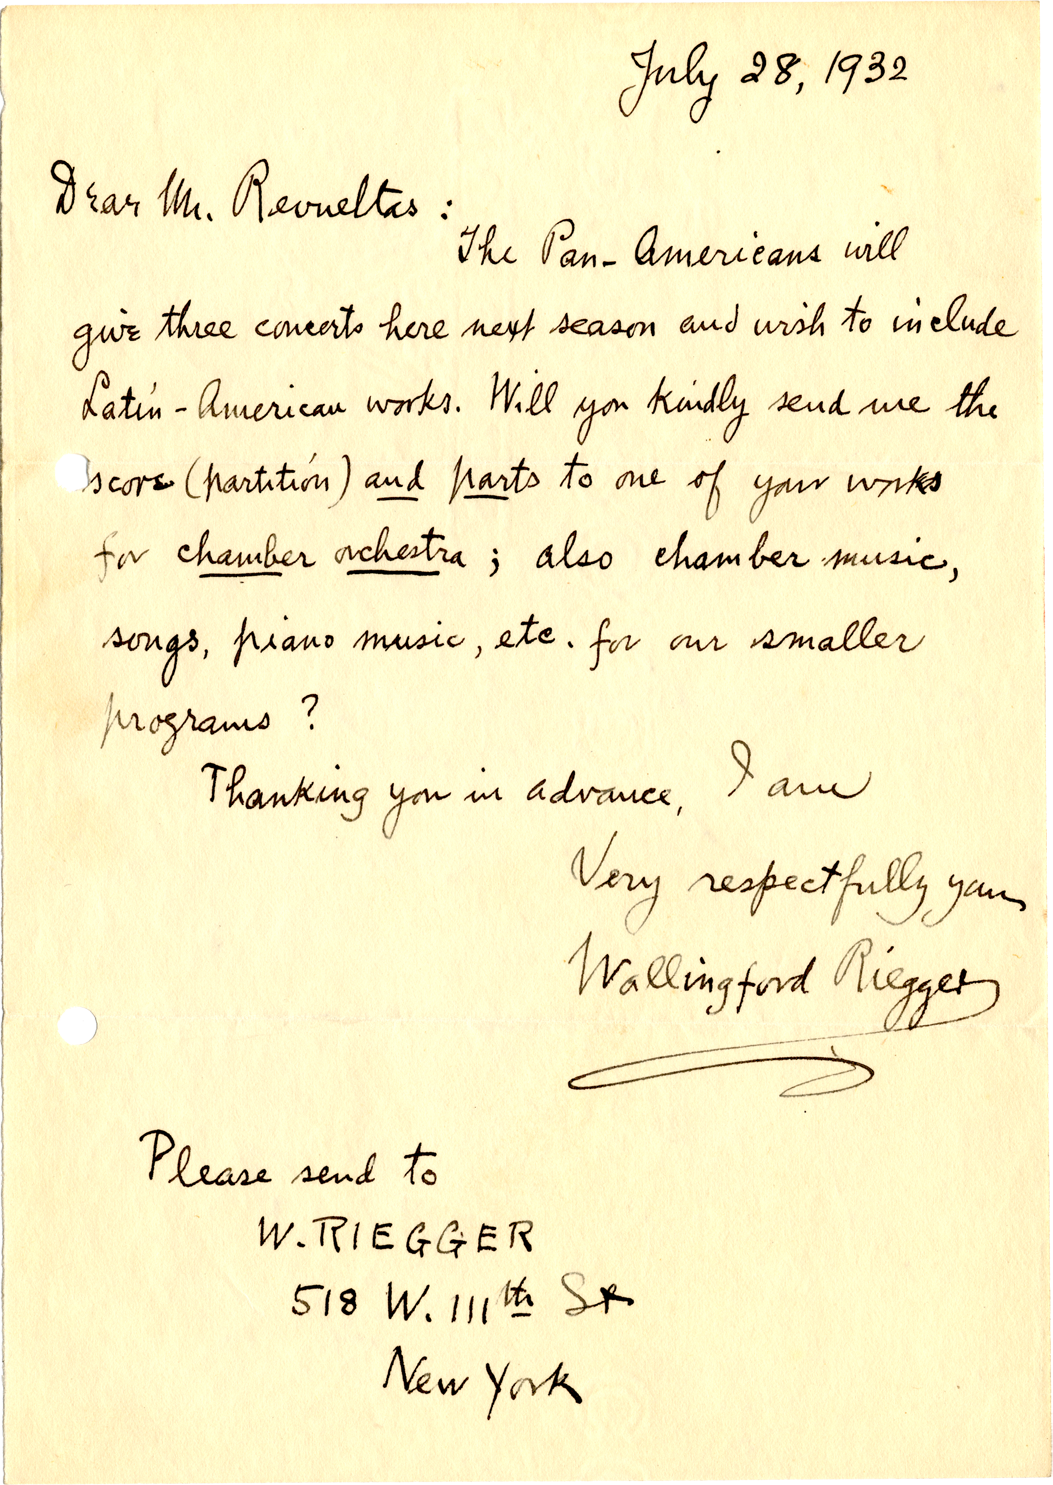 July 28, 1932
Dear Mr. Revueltas :
The Pan-Americans will
give three concerts here next season and wish to include
Latin-American works. Will you kindly send me the
score (partitión) and parts to one of your works
for chamber orchestra ; also chamber music,
songs, piano music, etc. for our smaller
programs ?
Thanking you in advance, I am
Very respectfully yours
Wallingford Riegger
Please send to
W. RIEGGER
518 W. 111th St
New York